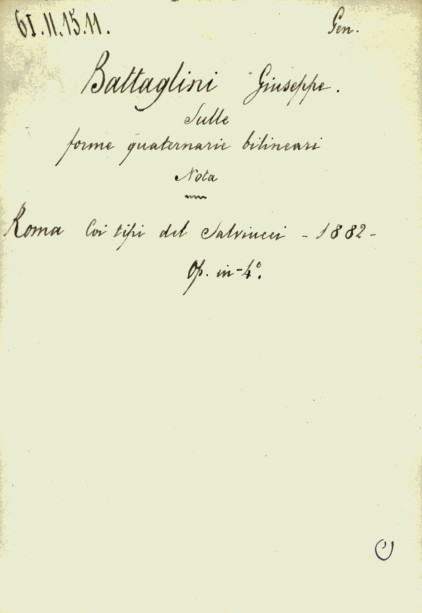 61.II.15.11.
Gen.
Battaglini Giuseppe.
Sulle
forme quaternarie bilineari
Nota
Roma Coi tipi del Salviucci - 1882 -
Op. in-4°.